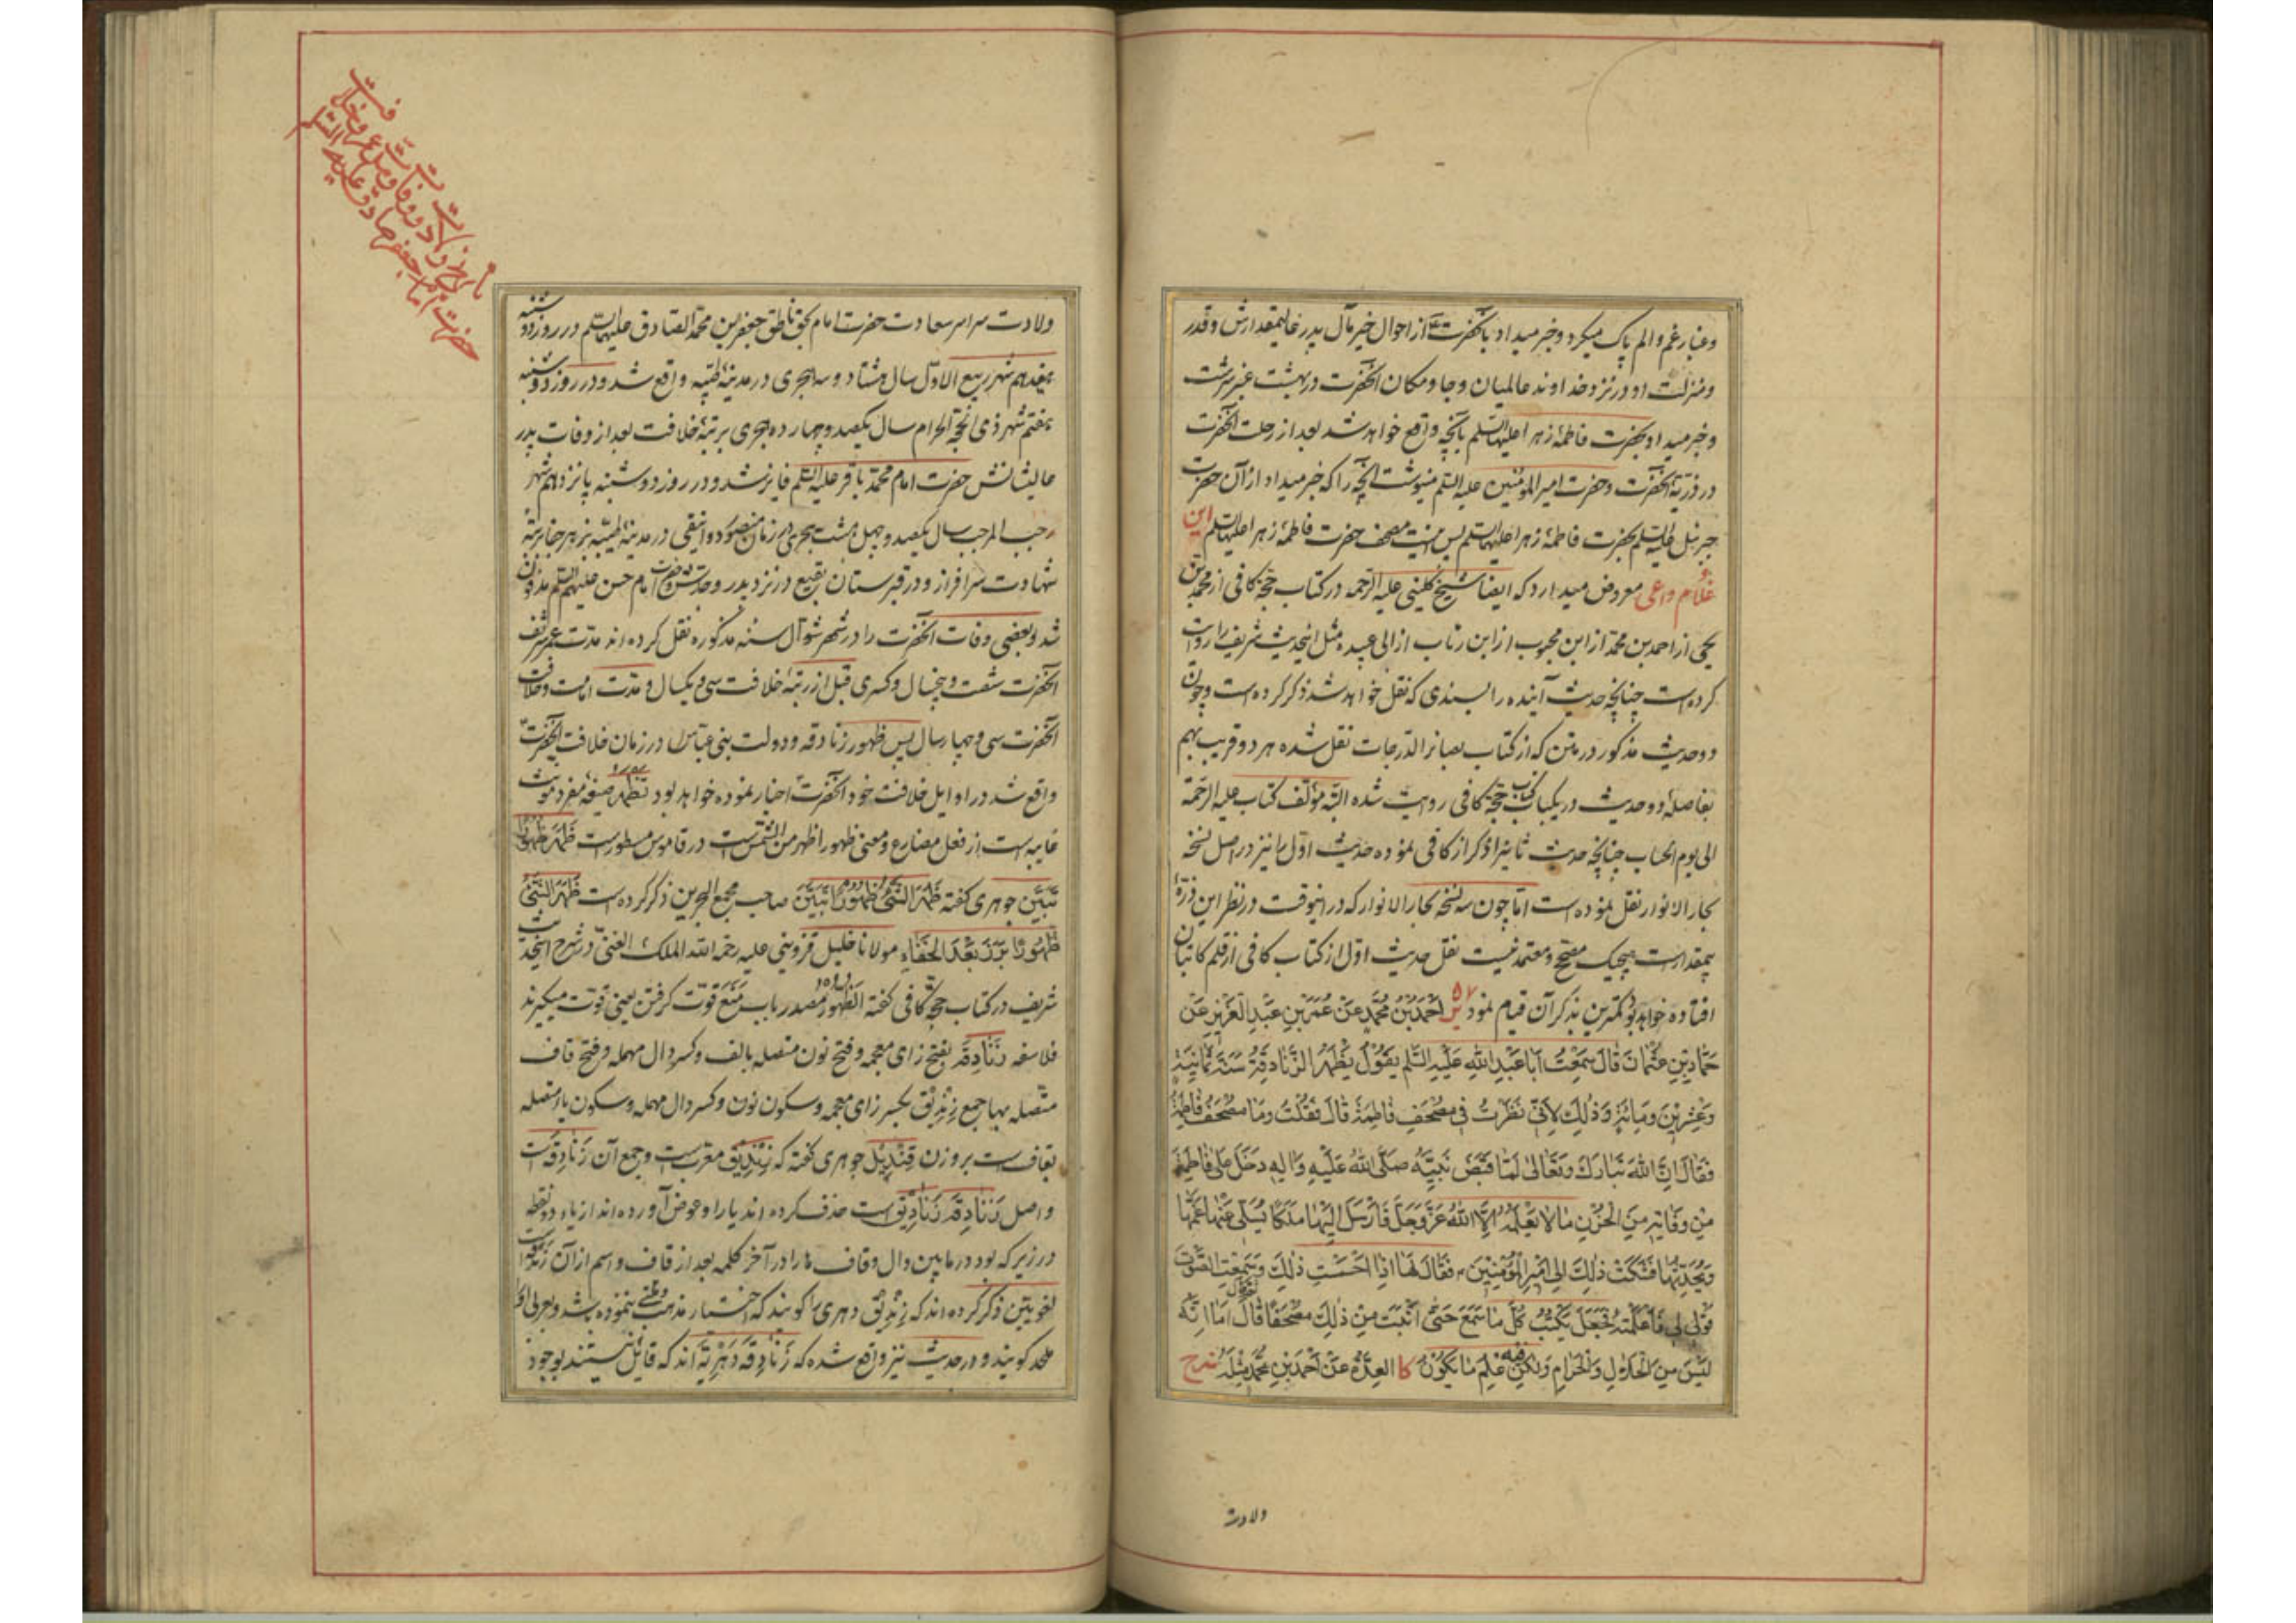 وغبار غم والم پاک میکرد وخبر میداد بآنحضرت از احوال خیر مآل پدر عالیمقدارش وقدر
ومنزلت او در نزد خداوند عالمیان وجا ومکان آنحضرت در بهشت عنبر سرشت
وخبر میداد بحضرت فاطمهٔ زهرا علیهاالسلم بآنچه واقع خواهد شد بعد از رحلت آنحضرت
در ذریّهٔ آنحضرت وحضرت امیرالمؤمنین علیه السلم مینوشت آنچه را که خبر میداد از آن حضرت
جبرئیل علیه السلم بحضرت فاطمهٔ زهرا علیهاالسلم پس اینست مصحف حضرت فاطمهٔ زهرا علیهاالسلم این
غلام داعی معروض میدارد که ایضا شیخ کلینی علیه الرحمه در کتاب حجّهٔ کافی از محمد بن
یحیی از احمد بن محمد از ابن محبوب از ابن رئاب از ابی عبیده مثل اینحدیث شریف را روایت
کرده است چنانچه حدیث آینده را بسندی که نقل خواهد شد ذکر کرده است وچون
دو حدیث مذکور در متن که از کتاب بصائر الدّرجات نقل شده هر دو قریب بهم
بفاصلهٔ دو حدیث در یکباب کتاب حجّهٔ کافی روایت شده البتّه مؤلّف کتاب علیه الرّحمة
الی یوم الحساب چنانچه حدیث ثانیرا ذکر از کافی نموده حدیث اوّل را نیز در اصل نسخه
بحار الانوار نقل نموده است امّا چون سه نسخه بحار الانوار که در اینوقت در نظر این ذرّهٔ
بیمقدار است هیچیک مصحّح ومعتمد نیست نقل حدیث اوّل از کتاب کافی از قلم کاتبان
افتاده خواهد بود کمترین بذکر آن قیام نمود ۵۷ یر اَحْمَدُ بْنُ مُحَمَّدٍ عَنْ عُمَرَ بْنِ عَبْدِ الْعَزِیزِ عَنْ
حَمَّادِ بْنِ عُثْمَانَ قَالَ سَمِعْتُ اَبَا عَبْدِ اللّٰهِ عَلَیْهِ السَّلم یَقُولُ یَظْهَرُ الزَّنَادِقَةُ سَنَةَ ثَمَانِیَةٍ
وَعِشْرِینَ وَمِائَةٍ وَذٰلِکَ لِاَنِّی نَظَرْتُ فِی مُصْحَفِ فَاطِمَةَ قَالَ فَقُلْتُ وَمَا مُصْحَفُ فَاطِمَةَ
فَقَالَ اِنَّ اللّٰهَ تَبَارَکَ وَتَعَالٰی لَمَّا قَبَضَ نَبِیَّهُ صَلَّی اللّٰهُ عَلَیْهِ وَاٰلِهِ دَخَلَ عَلٰی فَاطِمَةَ
مِنْ وَفَاتِهِ مِنَ الْحُزْنِ مَا لَا یَعْلَمُهُ اِلَّا اللّٰهُ عَزَّ وَجَلَّ فَاَرْسَلَ اِلَیْهَا مَلَکًا یُسَلِّی عَنْهَا غَمَّهَا
وَیُحَدِّثُهَا فَشَکَتْ ذٰلِکَ اِلٰی اَمِیرِ الْمُؤْمِنِینَ ع فَقَالَ لَهَا اِذَا اَحْسَسْتِ ذٰلِکَ وَسَمِعْتِ الصَّوْتَ
قُولِی لِی فَاَعْلَمَتْهُ فَجَعَلَ یَکْتُبُ کُلَّ مَا سَمِعَ حَتّٰی اَثْبَتَ مِنْ ذٰلِکَ مُصْحَفًا قَالَ اَمَا اِنَّهُ
لَیْسَ مِنَ الْحَلَالِ وَالْحَرَامِ وَلٰکِنْ فِیهِ عِلْمُ مَا یَکُونُ کا العِدَّةُ عَنْ اَحْمَدَ بْنِ مُحَمَّدٍ مِثْلَهُ شرح
ولادت
تاریخ ولادت ووفات
حضرت امام جعفر صادق علیه السلم
ولادت سراسر سعادت حضرت امام بحق ناطق جعفر بن محمّد الصّادق علیهماالسلم در روز دوشنبه
هفدهم شهر ربیع الاوّل سال هشتاد وسه هجری در مدینهٔ طیّبه واقع شد ودر روز دوشنبه
هفتم شهر ذی الحجّة الحرام سال یکصد وچهارده هجری برتبهٔ خلافت بعد از وفات پدر
عالیشانش حضرت امام محمّد باقر علیه السلم فایز شد ودر روز دوشنبه پانزدهم شهر
رجب المرجب سال یکصد وچهل وهشت هجری در زمان منصور دوانیقی در مدینهٔ طیّبه بزهر جفا برتبهٔ
شهادت سرافراز ودر قبرستان بقیع در نزد پدر وجدّش وحضرت امام حسن علیهم السلم مدفون
شد وبعضی وفات آنحضرت را در شهر شوّال سنه مذکوره نقل کرده اند مدّت عمر شریف
آنحضرت شصت وپنجسال وکسری قبل از رتبهٔ خلافت سی ویکسال ومدّت امامت وخلافت
آنحضرت سی وچهار سال پس ظهور زنادقه ودولت بنی عبّاس در زمان خلافت آنحضرت
واقع شد در اوایل خلافت خود آنحضرت اخبار نموده خواهد بود تَظْهَرُ صیغهٔ مفرد مؤنث
غایبه است از فعل مضارع ومعنی ظهور اظهر من الشّمس است در قاموس مسطور است ظَهَرَ ظُهُورًا
تَبَیَّنَ جوهری گفته ظَهَرَ الشَّیْءُ ظُهُورًا تَبَیَّنَ صاحب مجمع البحرین ذکر کرده است ظَهَرَ الشَّیْءُ
ظُهُورًا بَرَزَ بَعْدَ الْخَفَاءِ مولانا خلیل قزوینی علیه رحمة اللّه الملک الغنیّ در شرح اینحدیث
شریف در کتاب حجّهٔ کافی گفته الظُّهُور مصدر باب مَنَعَ قوّت گرفتن یعنی قوّت میگیرند
فلاسفه زَنَادِقَه بفتح زای معجمه وفتح نون متّصله بالف وکسر دال مهمله وفتح قاف
متّصله بها جمع زِنْدِیق بکسر زای معجمه وسکون نون وکسر دال مهمله وسکون یاء متّصله
بقاف است بر وزن قِنْدِیل جوهری گفته که زِنْدِیق معرّب است وجمع آن زَنَادِقَه است
واصل زَنَادِقَه زَنَادِیق است حذف کرده اند یا را وعوض آورده اند از یاء دو نقطه
در زیر که بود در مابین دال وقاف ها را در آخر کلمه بعد از قاف واسم از آن زَنْدَقَه است
لغویّین ذکر کرده اند که زِنْدِیق دهری را گویند که اختیار مذهب وملّتی ننموده باشد وبعربی او را
ملحد گویند ودر حدیث نیز واقع شده که زَنَادِقَه دَهْرِیَّه اند که قائل نیستند بوجود